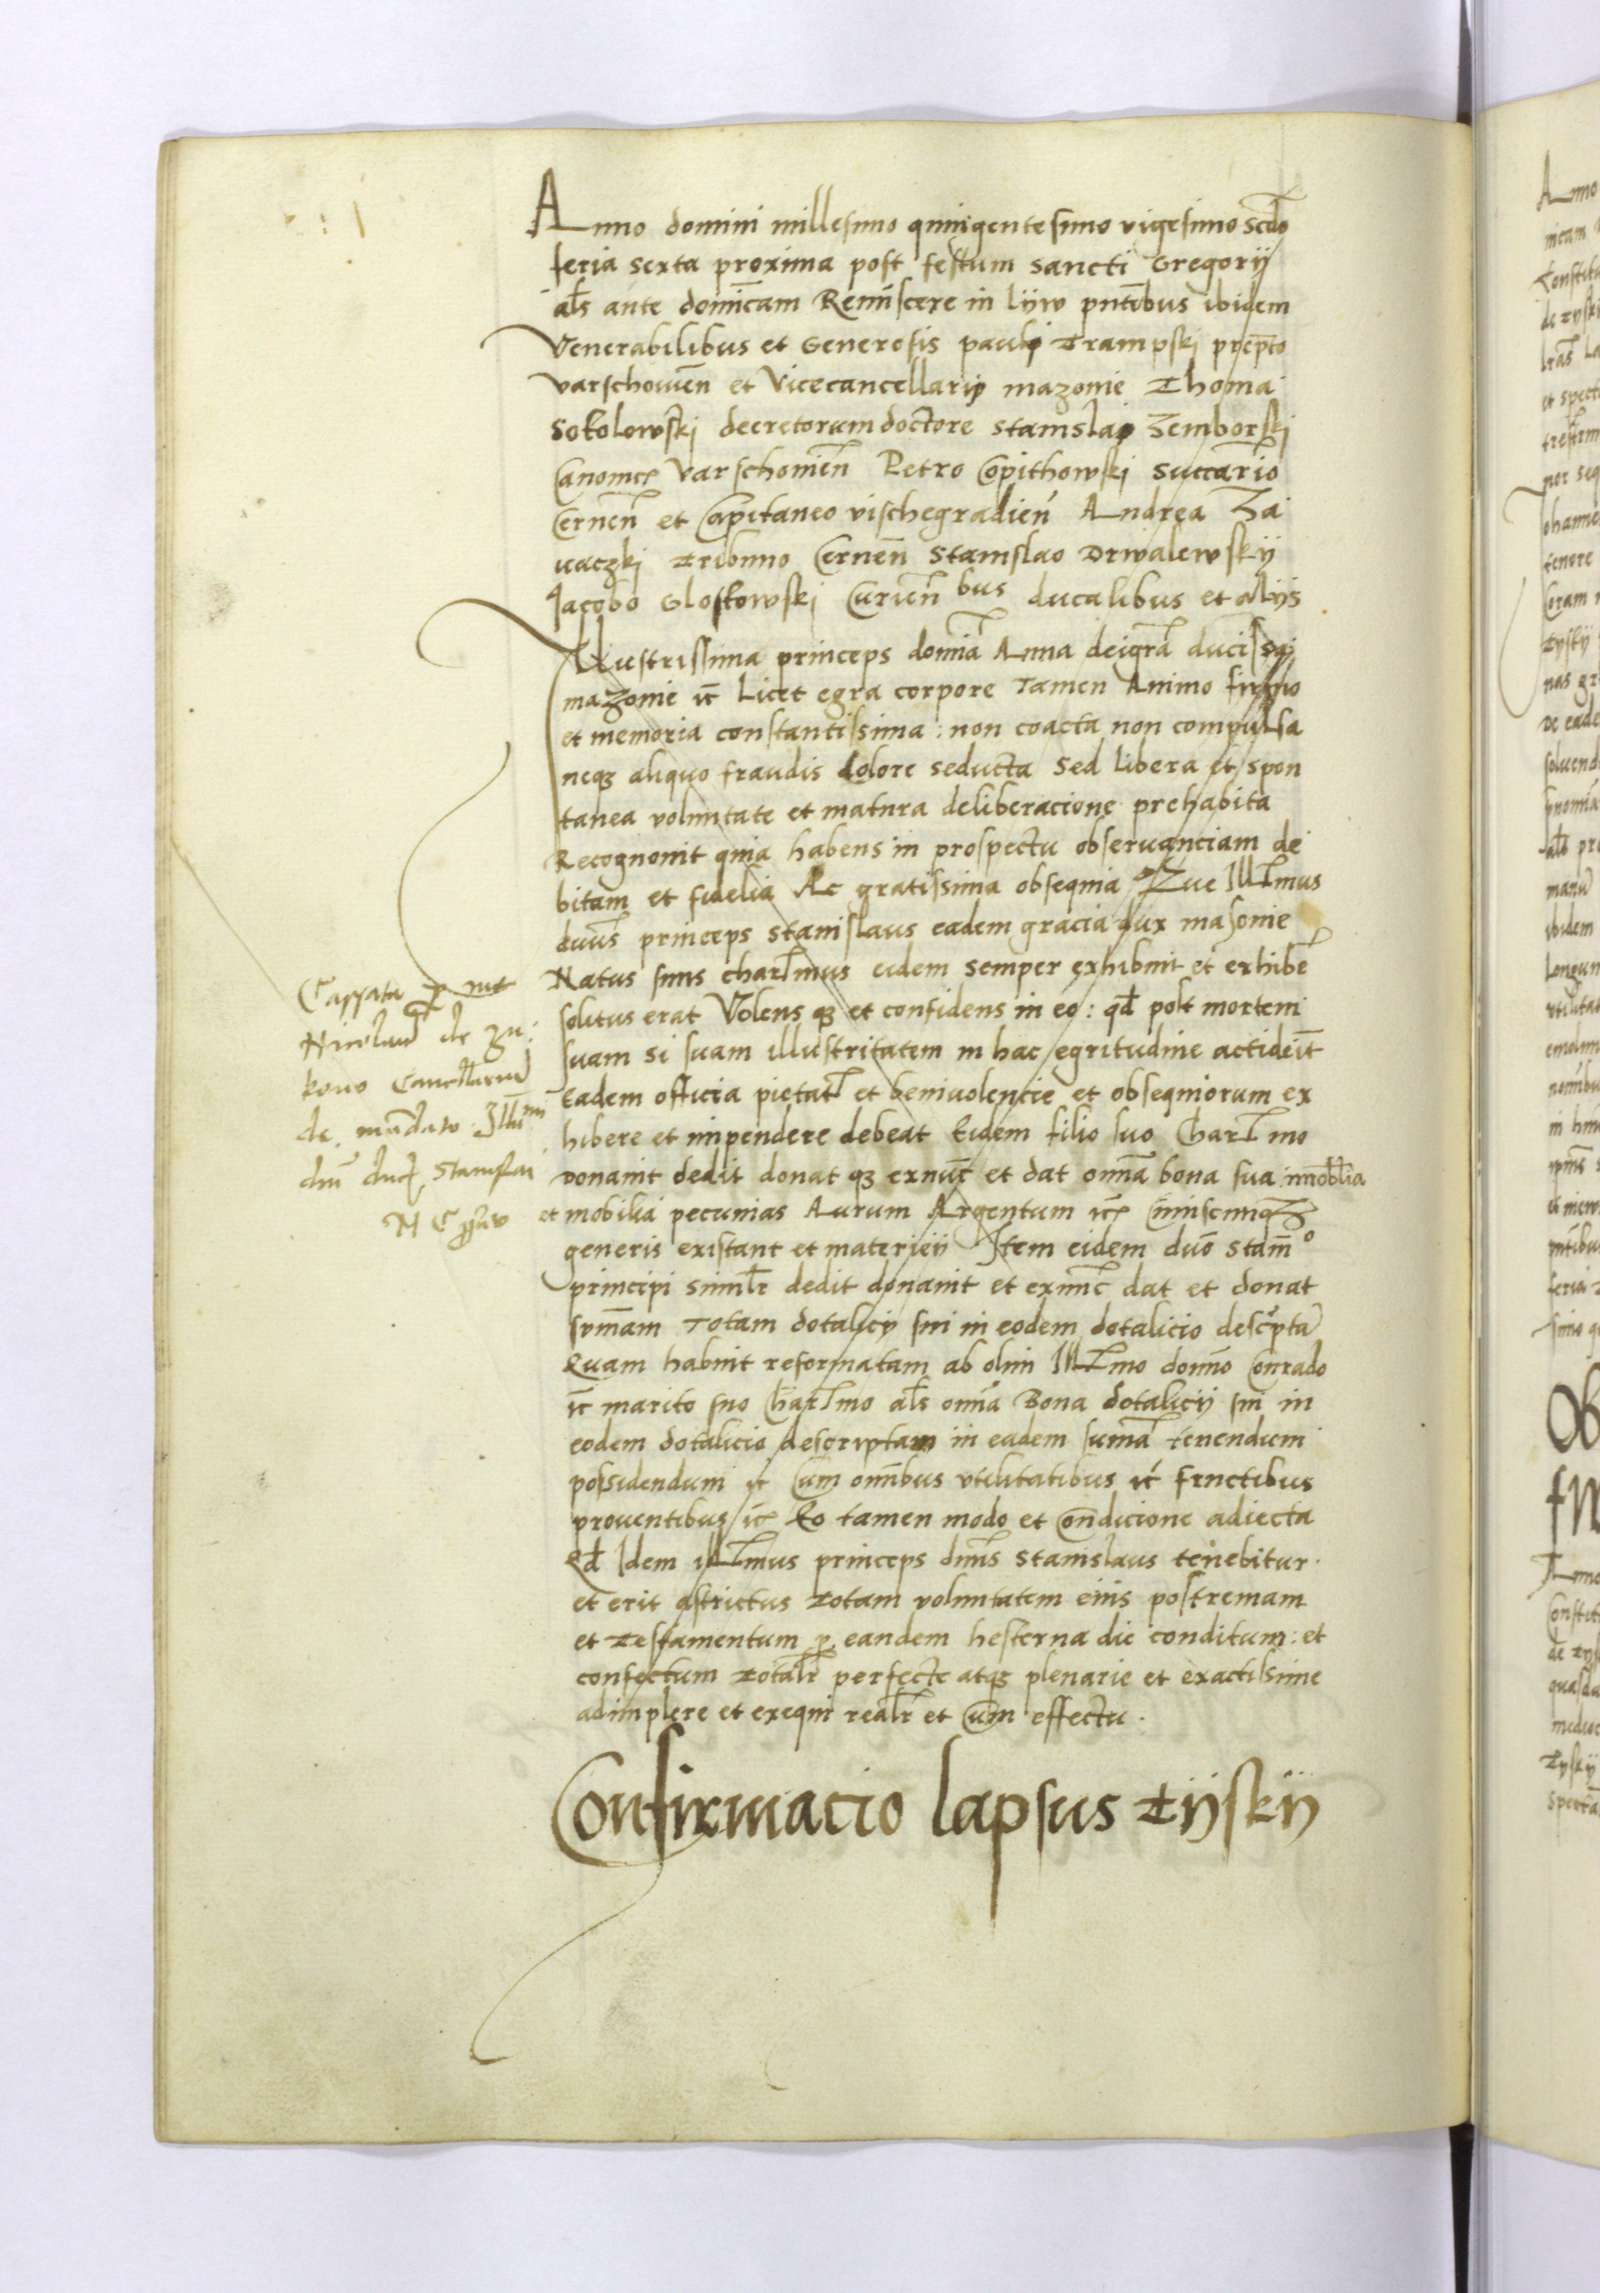 Anno domini millesimo quingentesimo vigesimo scdo
feria sexta proxima post festum sancti Gregorij
als ante domicam Reminiscere in lijw pntibus ibidem
Venerabilibus et Generosis pauli Trampski
varschowien et vicecancellarij mazovie Thoma
Sokolowskj decretorum doctore stanislaj Zemborskj
Canonics varschovien Petro Copithowskj Succario
Cernen et Capitaneo vischegradien Andrea Za
vaczkj Tribuno Cernen Stanislao Drwalewskij
Jacobo Gloskowskj Curien bus ducalibus et alijs
Illustrissima princeps domia Anna dei gra ducissa
mazovie ic licet egra corpore Tamen Animo firmo
et memoria constantissima : non coacta non compulsa
neqz aliquo fraudis dolore seducta Sed libera et spon
tanea voluntate et matura deliberacione prehabita
Recognovit quia habens in prospectu observanciam de
bitam et fidelia Ac gratissima obsequia Que Illmus
princeps Stanislaus eadem gracia dux masovie
Natus suus charmus eidem semper exhibuit et exhibe
solitus erat Volens qz et confidens in eo : qd post mortem
suam si suam illustritatem in hac egritudine
Eadem officia pietat et benivolencie et obsequiorum ex
hibere et impendere debeat Eidem filio suo Charmo
donavit dedit donat qz exnuc et dat omia bona sua imobilia
et mobilia pecunias Aurum Argentum ic Cuiuscunqz
generis existant et materieij Item eidem duo Stano
principi similr dedit donavit et exnuc dat et donat
sumam Totam dotalicij sui in eodem dotalicio descpta
Quam habuit reformatam ab olim Illmo domino Conrado
ic marito suo Charmo als omia Bona dotalicij sui in
eodem dotalicio descriptam in eadem suma tenendum
possidendum ic Cum omibus utilitatibus ic fructibus
proventibus ic Eo tamen modo et condicione adiecta
Qd Idem illmus princeps dnus Stanislaus tenebitur
et erit astrictus Totam voluntatem eius postremam
et Testamentum p eandem hesterna die conditum : et
confectum Totalr perfecte atqz plenarie et exactissime
adimplere et exequi realr et Cum effectu .
Confirmacio lapsus Tijskij
Cassata p me
Nicolaum de Zu
kovo Cancellarium
de mandato Illmi
dni ducis Stanislai